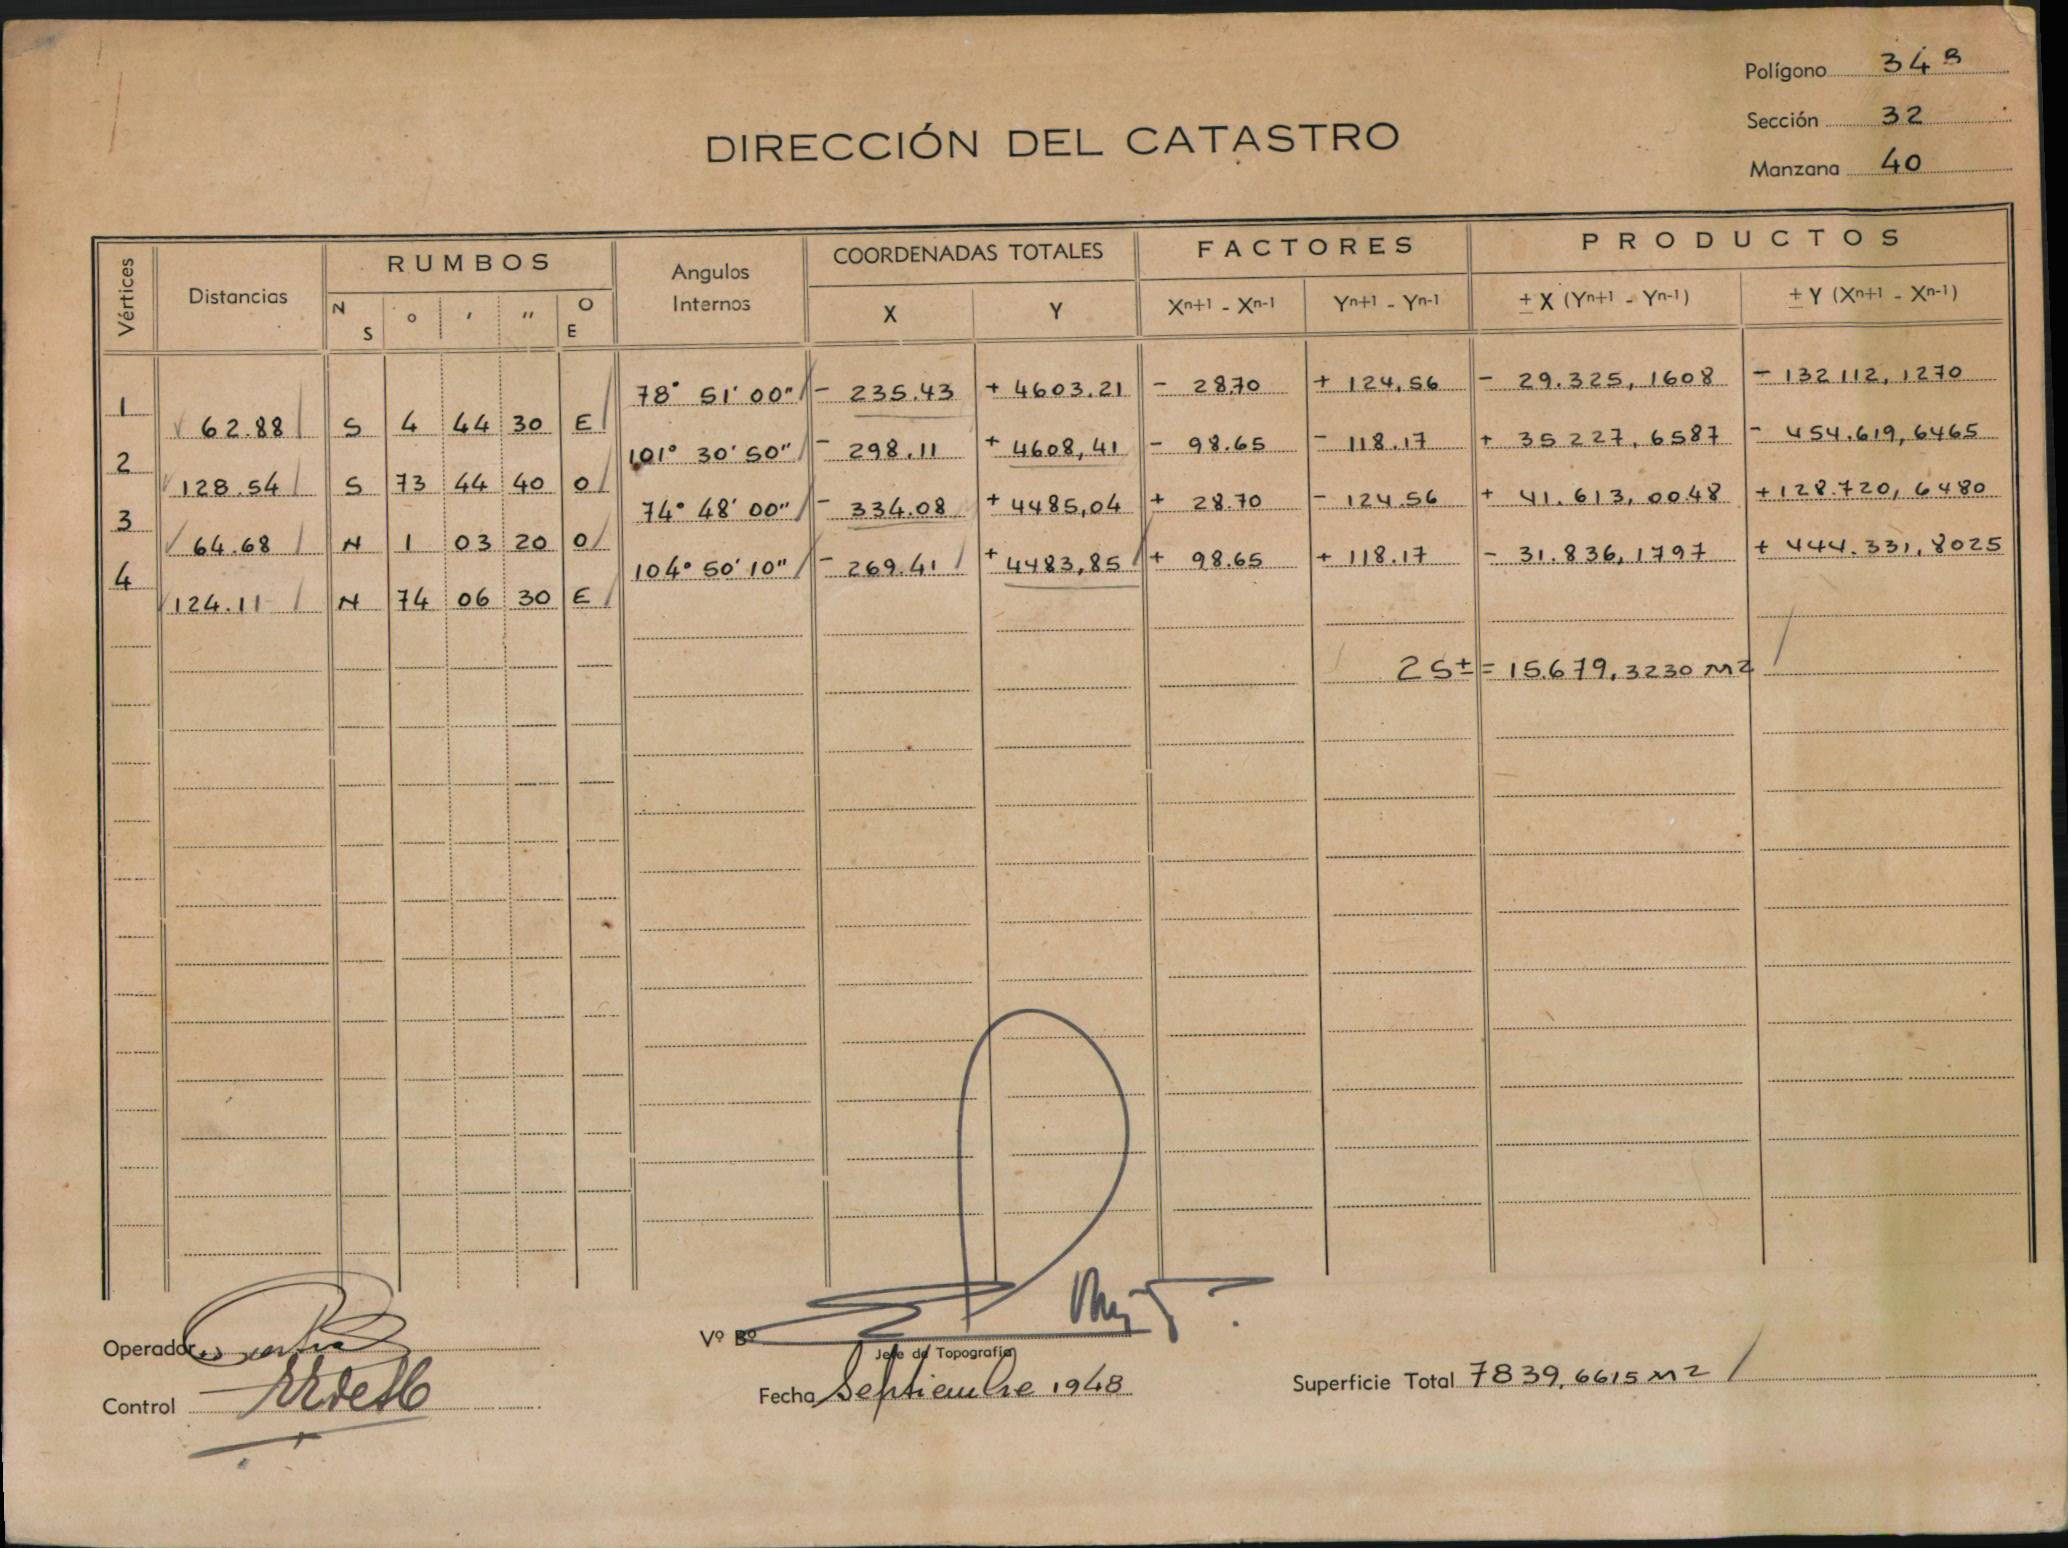 Polígono 34 B
Sección 32
Manzana 40
DIRECCIÓN DEL CATASTRO
Vértices Distancias RUMBOS Angulos Internos COORDENADAS TOTALES FACTORES PRODUCTOS
N S ° ' '' O E X Y Xn+1 - Xn-1 Yn+1 - Yn-1 ± X (Yn+1 - Yn-1) ± Y (Xn+1 - Xn-1)
1 78° 51' 00" - 235.43 + 4603.21 - 28.70 + 124.56 - 29.325,1608 - 132112,1270
62.88 S 4 44 30 E
2 101° 30' 50" - 298.11 + 4608,41 - 98.65 - 118.17 + 35227,6587 - 454.619,6465
128.54 S 73 44 40 O
3 74° 48' 00" - 334.08 + 4485,04 + 28.70 - 124.56 + 41.613,0048 + 128.720,6480
64.68 N 1 03 20 O
4 104° 50' 10" - 269.41 + 4483,85 + 98.65 + 118.17 - 31.836,1797 + 444.331,8025
124.11 N 74 06 30 E
2 S ± = 15.679,3230 M2
Operador
Control
Vº Bº
Jefe de Topografía
Fecha Septiembre 1948
Superficie Total 7839,6615 M2